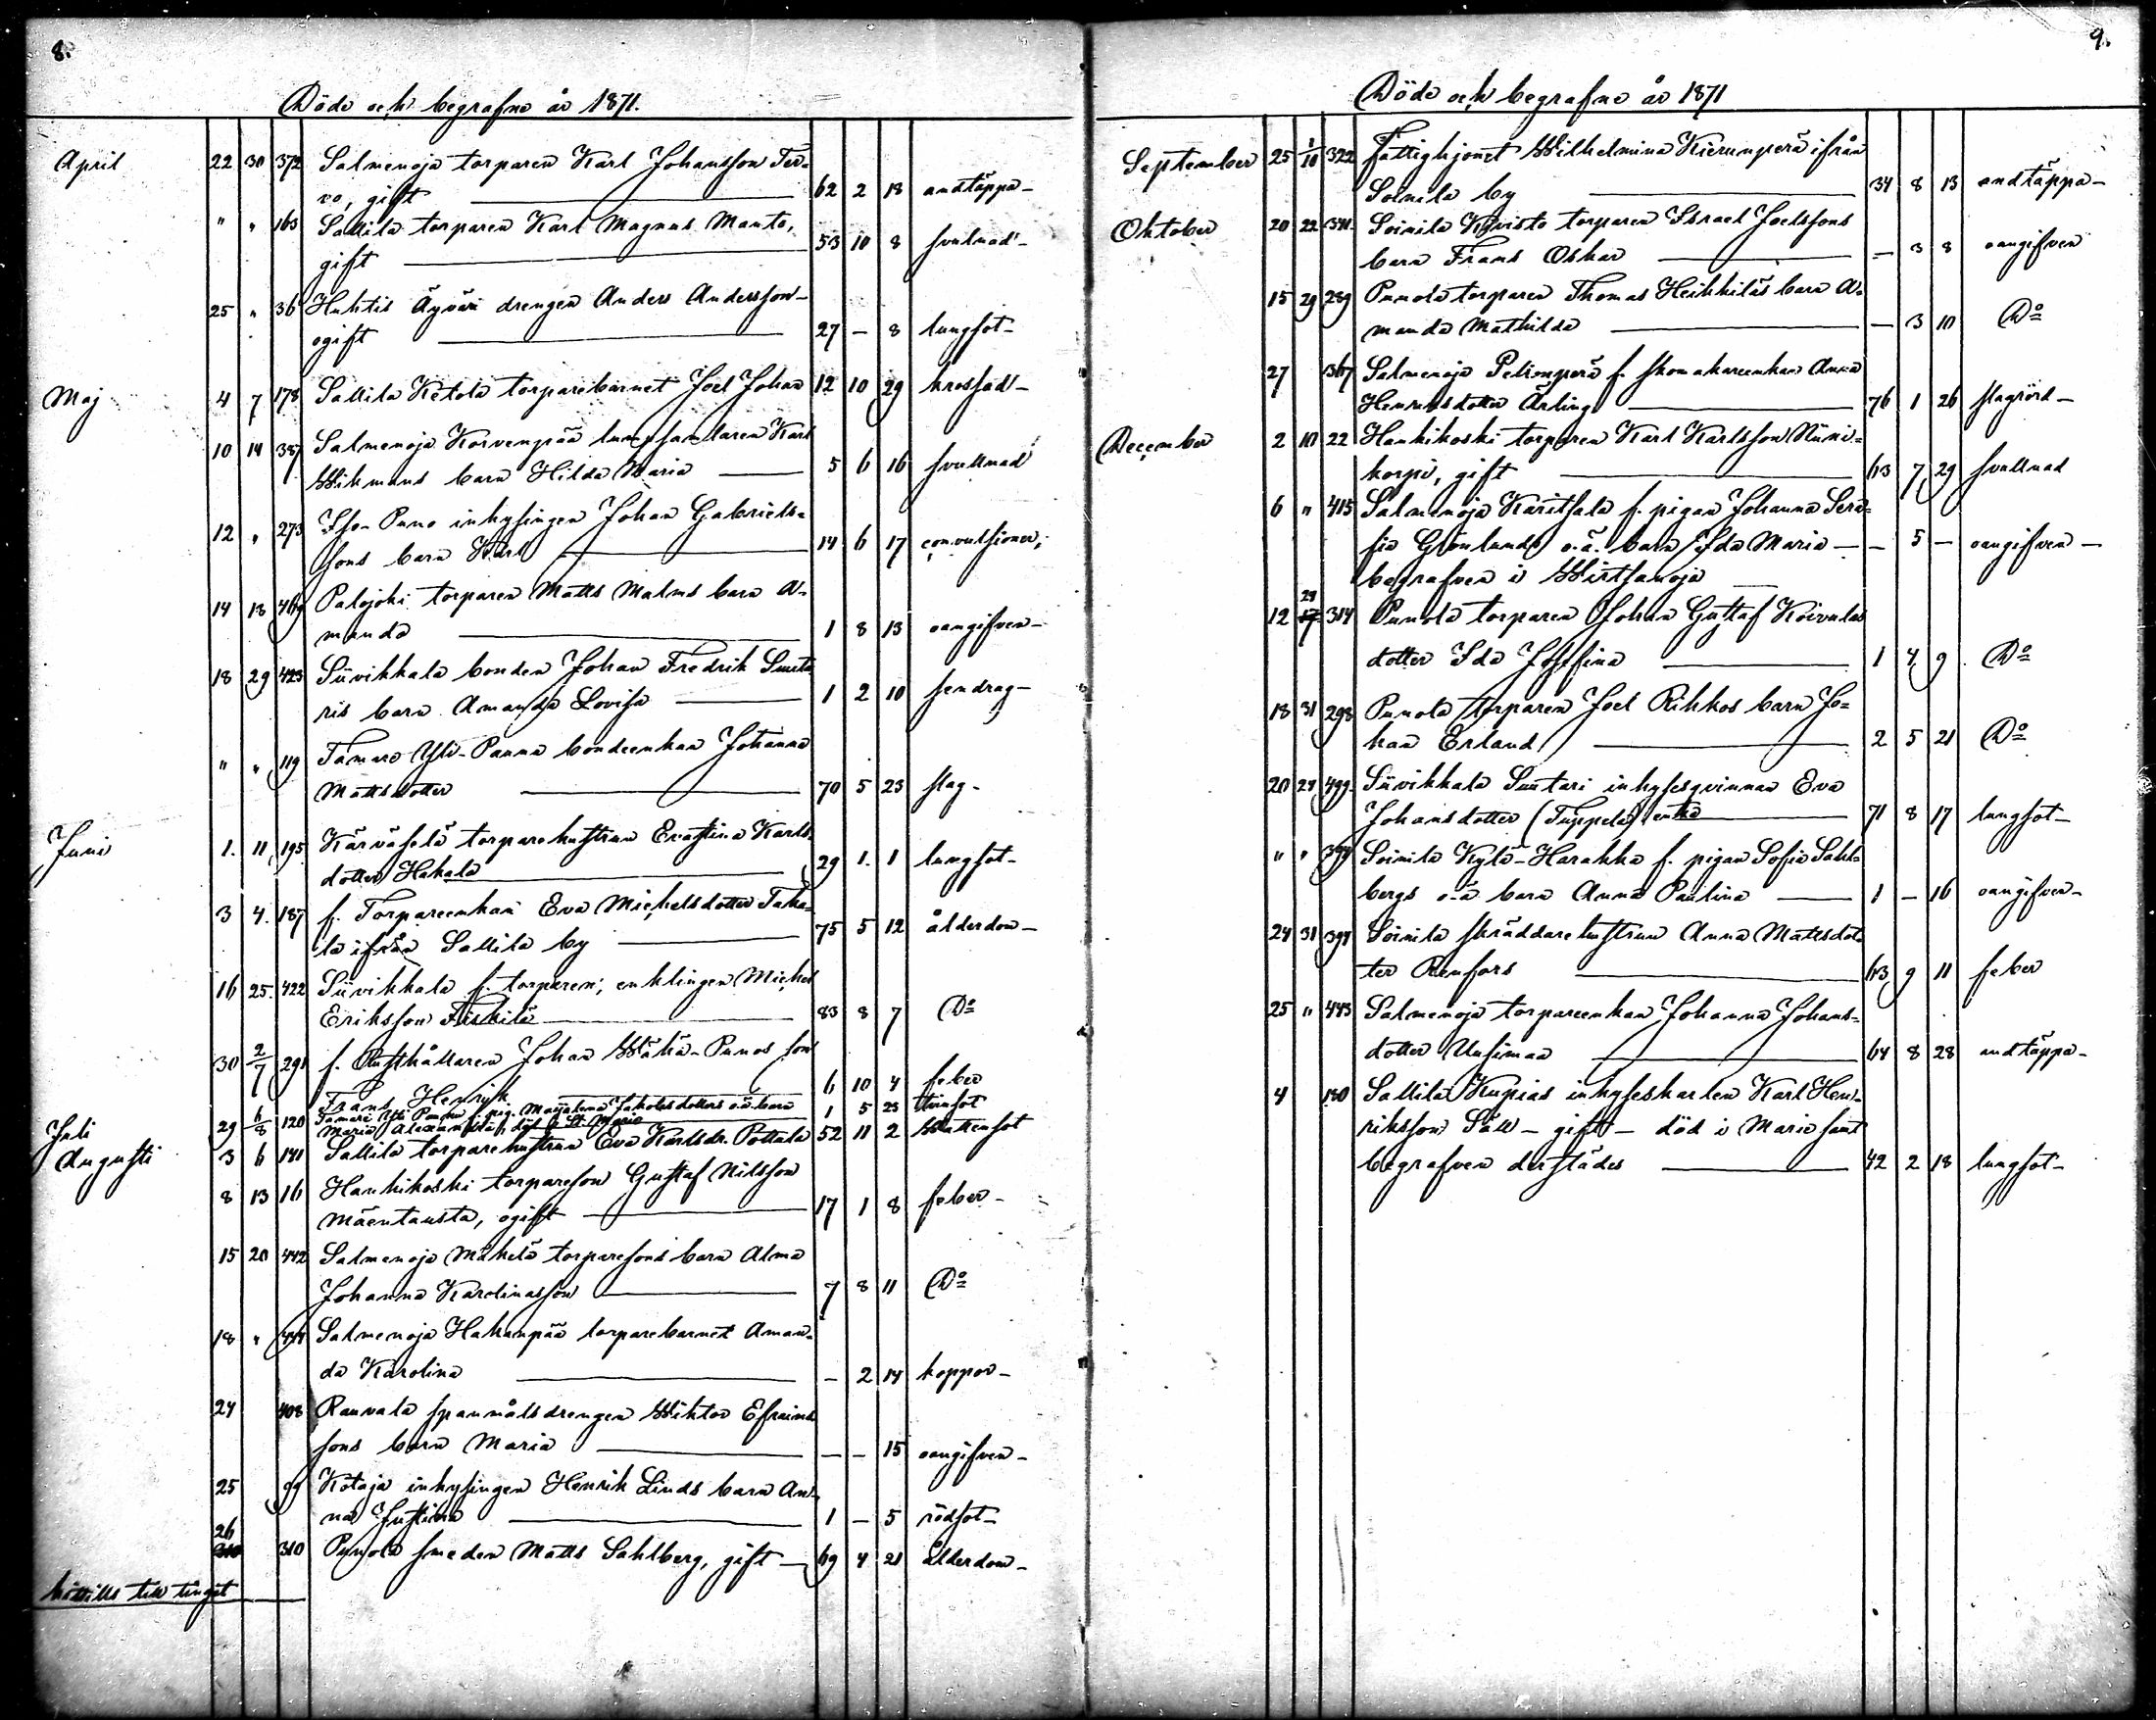 8.
Döde och begrafne år 1871.
April 22 30 372 Salmenoja torparen Karl Johansson Ter-
vo, gift 62 2 18 andtäppa-
" " 163 Sallila torparen Karl Magnus Manto,
gift 53 10 8 svulnad-
25 " 36 Huhtis Äyväri drengen Anders Andersson-
ogift 27 - 8 lungsot-
Maj 4 7 178 Sallila Ketola torparebarnet Joel Johan 12 10 29 krossad-
10 14 387 Salmenoja Korvenpää lumpsamlaren Karl
Wikmans barn Hilda Maria 5 6 16 svullnad
12 " 273 Iso-Puno inhysingen Johan Gabriels-
sons barn Karl 14 6 17 convulsioner,
14 18 469 Palojoki torparen Matts Malms barn A-
manda 1 8 13 oangifven-
18 29 423 Siivikkala bonden Johan Fredrik Suuta
ris barn Amanda Lovisa 1 2 10 sendrag-
" " 119 Tamare Yli-Panna bondeenkan Johanna
Mattsdotter 70 5 23 slag-
Juni 1. 11 195 Kärväselä torparehustrun Evastina Karls-
dotter Hakala 29 1. 1 lungsot-
3 4. 187 f. Torpareenkan Eva Michelsdotter Taka-
la ifrån Sallila by 75 5 12 ålderdom-
16 25. 422 Siivikkala f. torparen, enklingen Michel
Eriksson 83 8 7 Do
30 2/7 291 f. Rusthållaren Johan Wähä-Punos son
Frans Henrik 6 10 4 feber
Juli 29 6/8 120 Tamare Yli Panna f. pig. Maijalena Jakobsdotters o.ä. barn 1 5 23 tvinsot
Maria Alexandra, död i St. Marie
Augusti 3 6 141 Sallila torparehustrun Eva Karlsdr. Pottala 52 11 2 Wattensot
8 13 16 Hankikoski torpareson Gustaf Nilsson
Mäentausta, ogift 17 1 8 feber-
15 20 442 Salmenoja Mäkelä torparesons barn Alma
Johanna Karolinasson 7 8 11 Do
18 " 444 Salmenoja Hakanpää torparebarnet Aman-
da Karolina - 2 14 koppor-
24 408 Rauvala spannmålsdrengen Wiktor Efraims
sons barn Maria - - 15 oangifven-
25 99 Kotoja inhysingen Henrik Linds barn An-
na Justina 1 - 5 rödsot-
26 310 Punola smeden Matts Sahlberg, gift 69 4 21 ålderdom-
hittills till tinget
9.
Döde och begrafne år 1871
September 25 1/10 322 Fattighjonet Wilhelmina Kierumperä ifrån
Soinila by 34 8 13 andtäppa-
Oktober 20 22 341. Soinila Kyvisto torparen Israel Joelssons
barn Frans Oskar - 3 8 oangifven
15 29 289 Punola torparen Thomas Heikkiläs barn A-
manda Mathilda - 3 10 Do
27 367 Salmenoja Peltonperä f. skomakareenkan Anna
Henriksdotter Ärling 76 1 26 slagrörd-
December 2 10 22 Hankikoski torparen Karl Karlsson Niini-
korpi, gift 63 7 29 svullnad
6 " 415 Salmenoja Karitsala f. pigan Johanna Sera-
fia Grönlunds o.ä. barn Ida Maria - 5 - oangifven-
begrafven i Wirtsanoja
24
12 17 314 Punola torparen Johan Gustaf Koivulas
dotter Ida Josefina 1 4 9 Do
18 31 298 Punola torparen Joel Rikkos barn Jo-
han Erland 2 5 21 Do
20 24 499. Siivikkala Suutari inhysesqvinnan Eva
Johansdotter (Tuppela) enka 71 8 17 lungsot-
" " 394 Soinila Kylä-Harakka f. pigan Sofia Sahl-
bergs o.ä barn Anna Paulina 1 - 16 oangifven-
24 31 394 Soinila skräddarehustrun Anna Mattsdot-
ter Renfors 63 9 11 feber
25 " 443 Salmenoja torpareenkan Johanna Johans-
dotter Uusimaa 64 8 28 andtäppa-
4 140 Sallila Krupias inhyseskarlen Karl Hen-
riksson Säll - gift - död i Marie samt
begrafven derstädes 42 2 18 lungsot-